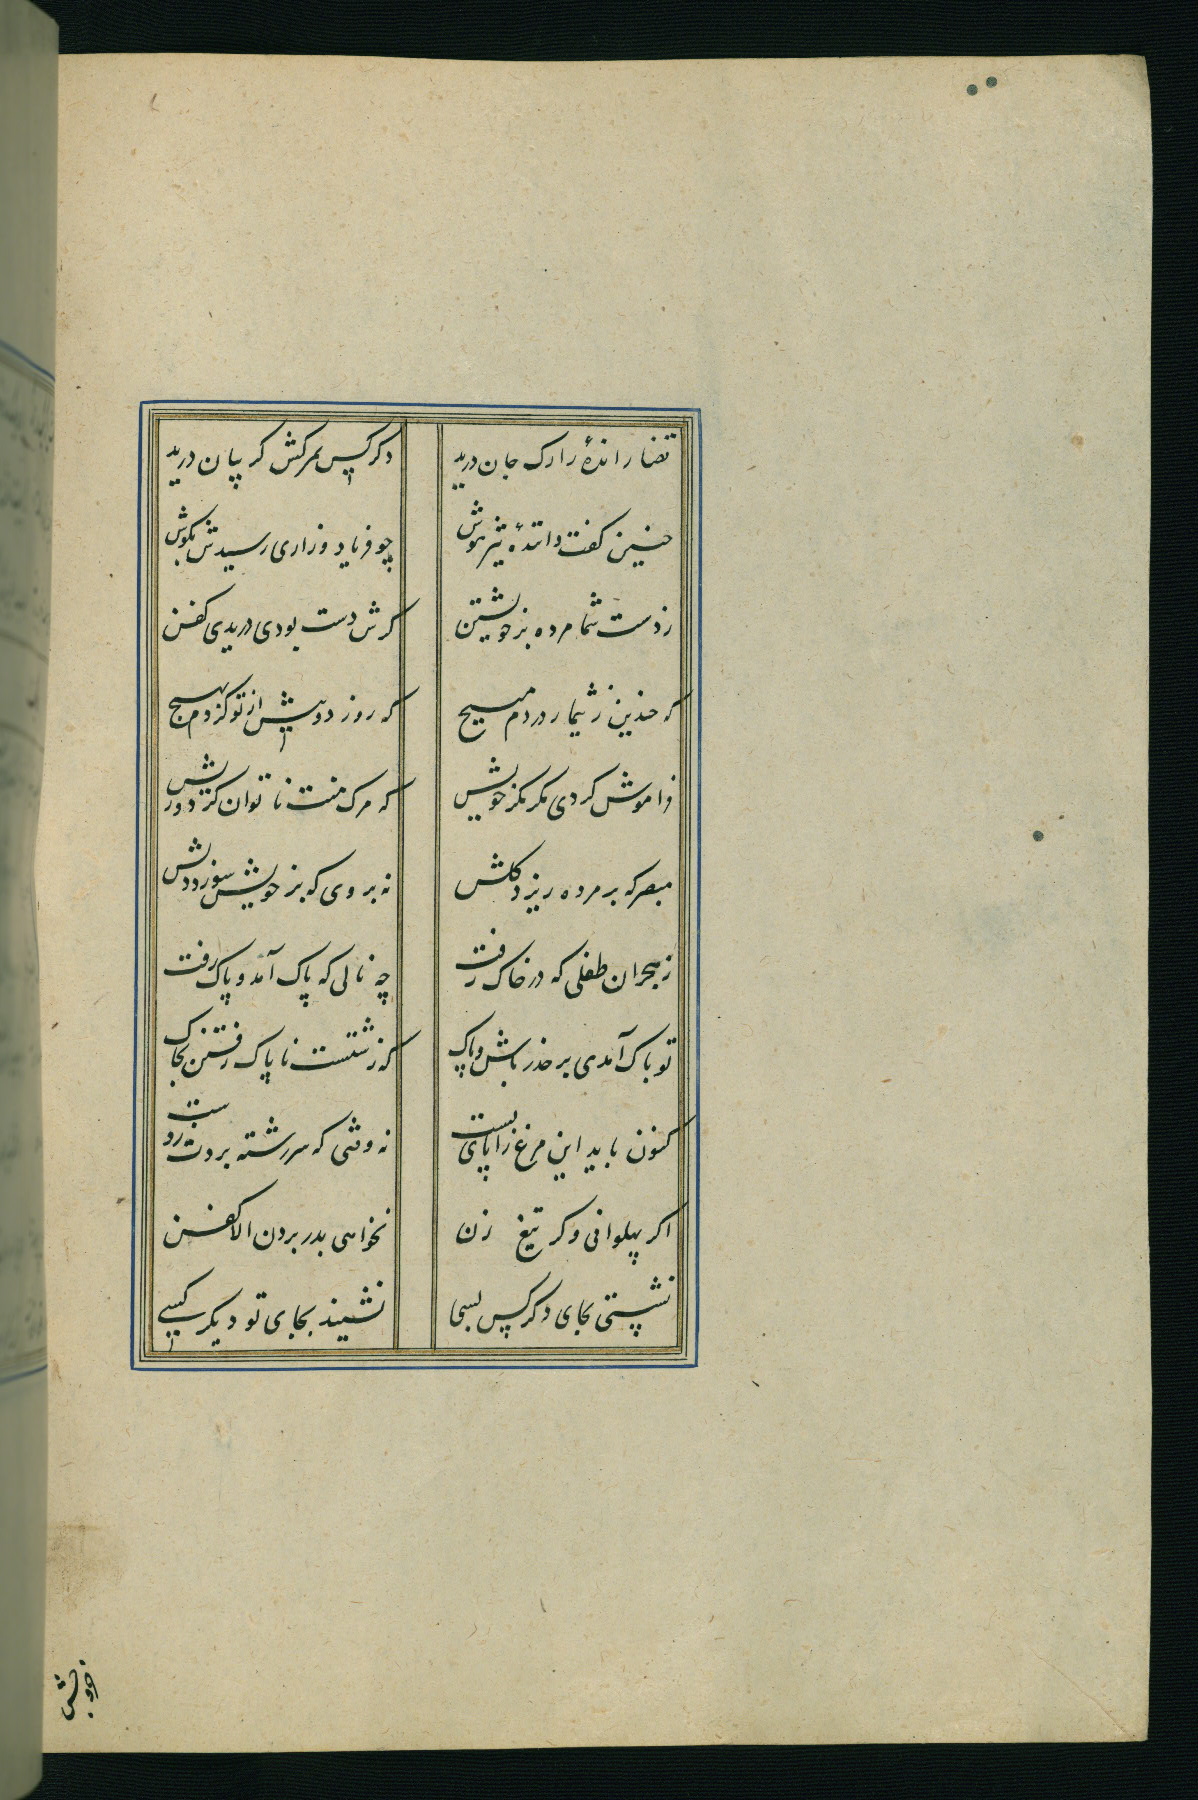 قضا را ندهٔ را رک جان درید دکر کس بمرکش کریبان درید
چنین کفت دانندهٔ تیز هوش چو فریاد و زاری رسیدش بکوش
زدست شما مرده بر خویشتن کرش دست بودی دریدی کفن
که چندین ز تیمار دردم مپیچ که روز دو پیش از تو کردم بسیج
فراموش کردی مکر مرک خویش که مرک منت ناتوان کرد و ریش
مبصر که بر مرده ریزد کلش نه بر وی که بر خویش سوزد دلش
ز هجران طفلی که در خاک رفت چه نالی که پاک آمد و پاک رفت
تو پاک آمدی بر حذر باش و پاک که زشتست ناپاک رفتن بخاک
کنون باید این مرغ را پای بست نه وقتی که سررشته بردت ز دست
اکر پهلوانی وکر تیغ زن نخواهی بدر بردن الا کفن
نشستی بجای دکر کس بسی نشیند بجای تو دیکر کسی